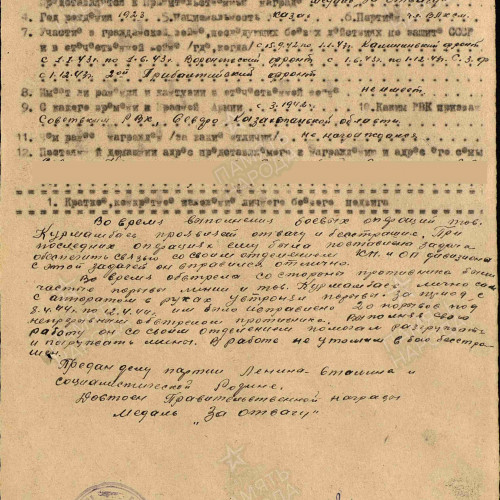 4. Год рождения 1923. 5. Национальность казах. 6. Партийн. чл ВЛКСМ.
7. Участие в гражданской войне, последующих боевых действиях по защите СССР
и в отечественной войне /где, когда/ Калининский фронт
Воронежский фронт
2ой Прибалтийский фронт
8. Имеет ли ранения и контузии в отечественной войне не имеет.
9. С какого времени в Красной Армии. с 3.1942г. 10. Каким РВК призван
Советским РВК, Северо Казахстанской области.
11. Чем ранее награжден /за какие отличия/. не награждался
12. Постоянный домашний адрес представляемого к награждению и адрес его семьи
1. Краткое, конкретное изложение личного боевого подвига
Во время выполнения боевых операций тов.
Курмамбаев проявил отвагу и бесстрашие. При
последних операциях ему была поставлена задача
обеспечить связью со своим отделением КП и ОП дивизиона
с этой задачей он справился отлично.
Во время обстрела со стороны противника были
частые порывы линии и тов. Курмамбаев лично сам
с аппаратом в руках устронял порывы. За время с
8.4.44г. по 12.4.44г. им было исправлено 20 порывов под
непрерывным обстрелом противника. Выполняя свою
работу он со своим отделением помогал разгружать
и погружать мины. В работе неутомим в бою бесстра-
шен.
Предан делу партии Ленина-Сталина и
социалистической Родине.
Достоин Правительственной награды
медаль „За отвагу"